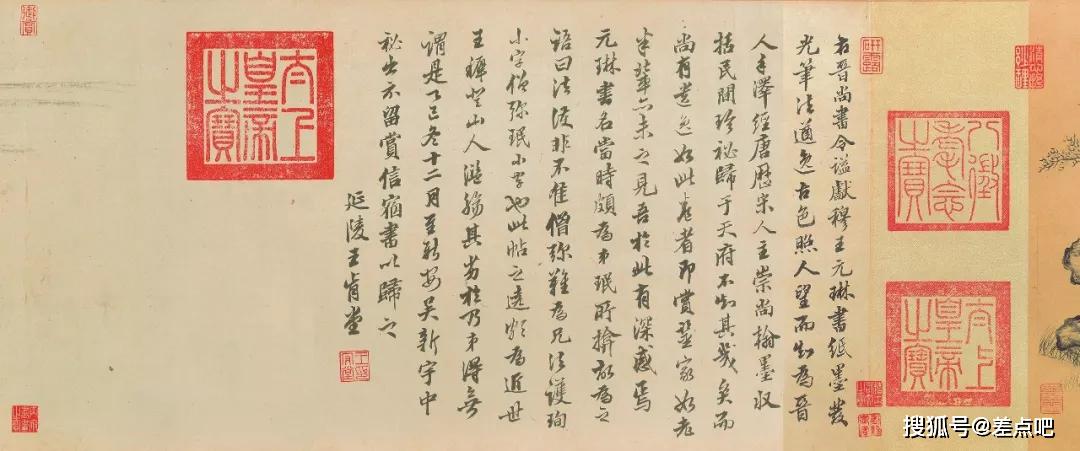 右晉尚書令謚獻穆王元琳書紙墨發
光筆法遒逸古色照人望而知為晉
人手澤經唐歷宋人主崇尚翰墨収
括民間珍祕歸于天府不知其幾矣而
尚有遺逸如此卷者即賞鑒家如老
米輩亦未之見吾於此有深感焉
元琳書名當時頗為弟珉所揜故為之
語曰法護非不佳僧彌難為兄法護珣
小字僧彌珉小字也此帖之為近世
王穉登山人濫觴其劣於乃弟得無
謂是丁巳冬十二月至新安吳新宇中
祕出示留賞信宿書以歸之
延陵王肯堂
太上皇帝之寶
八徵耄念之寶
太上皇帝之寶
研露
搜狐号@差点吧